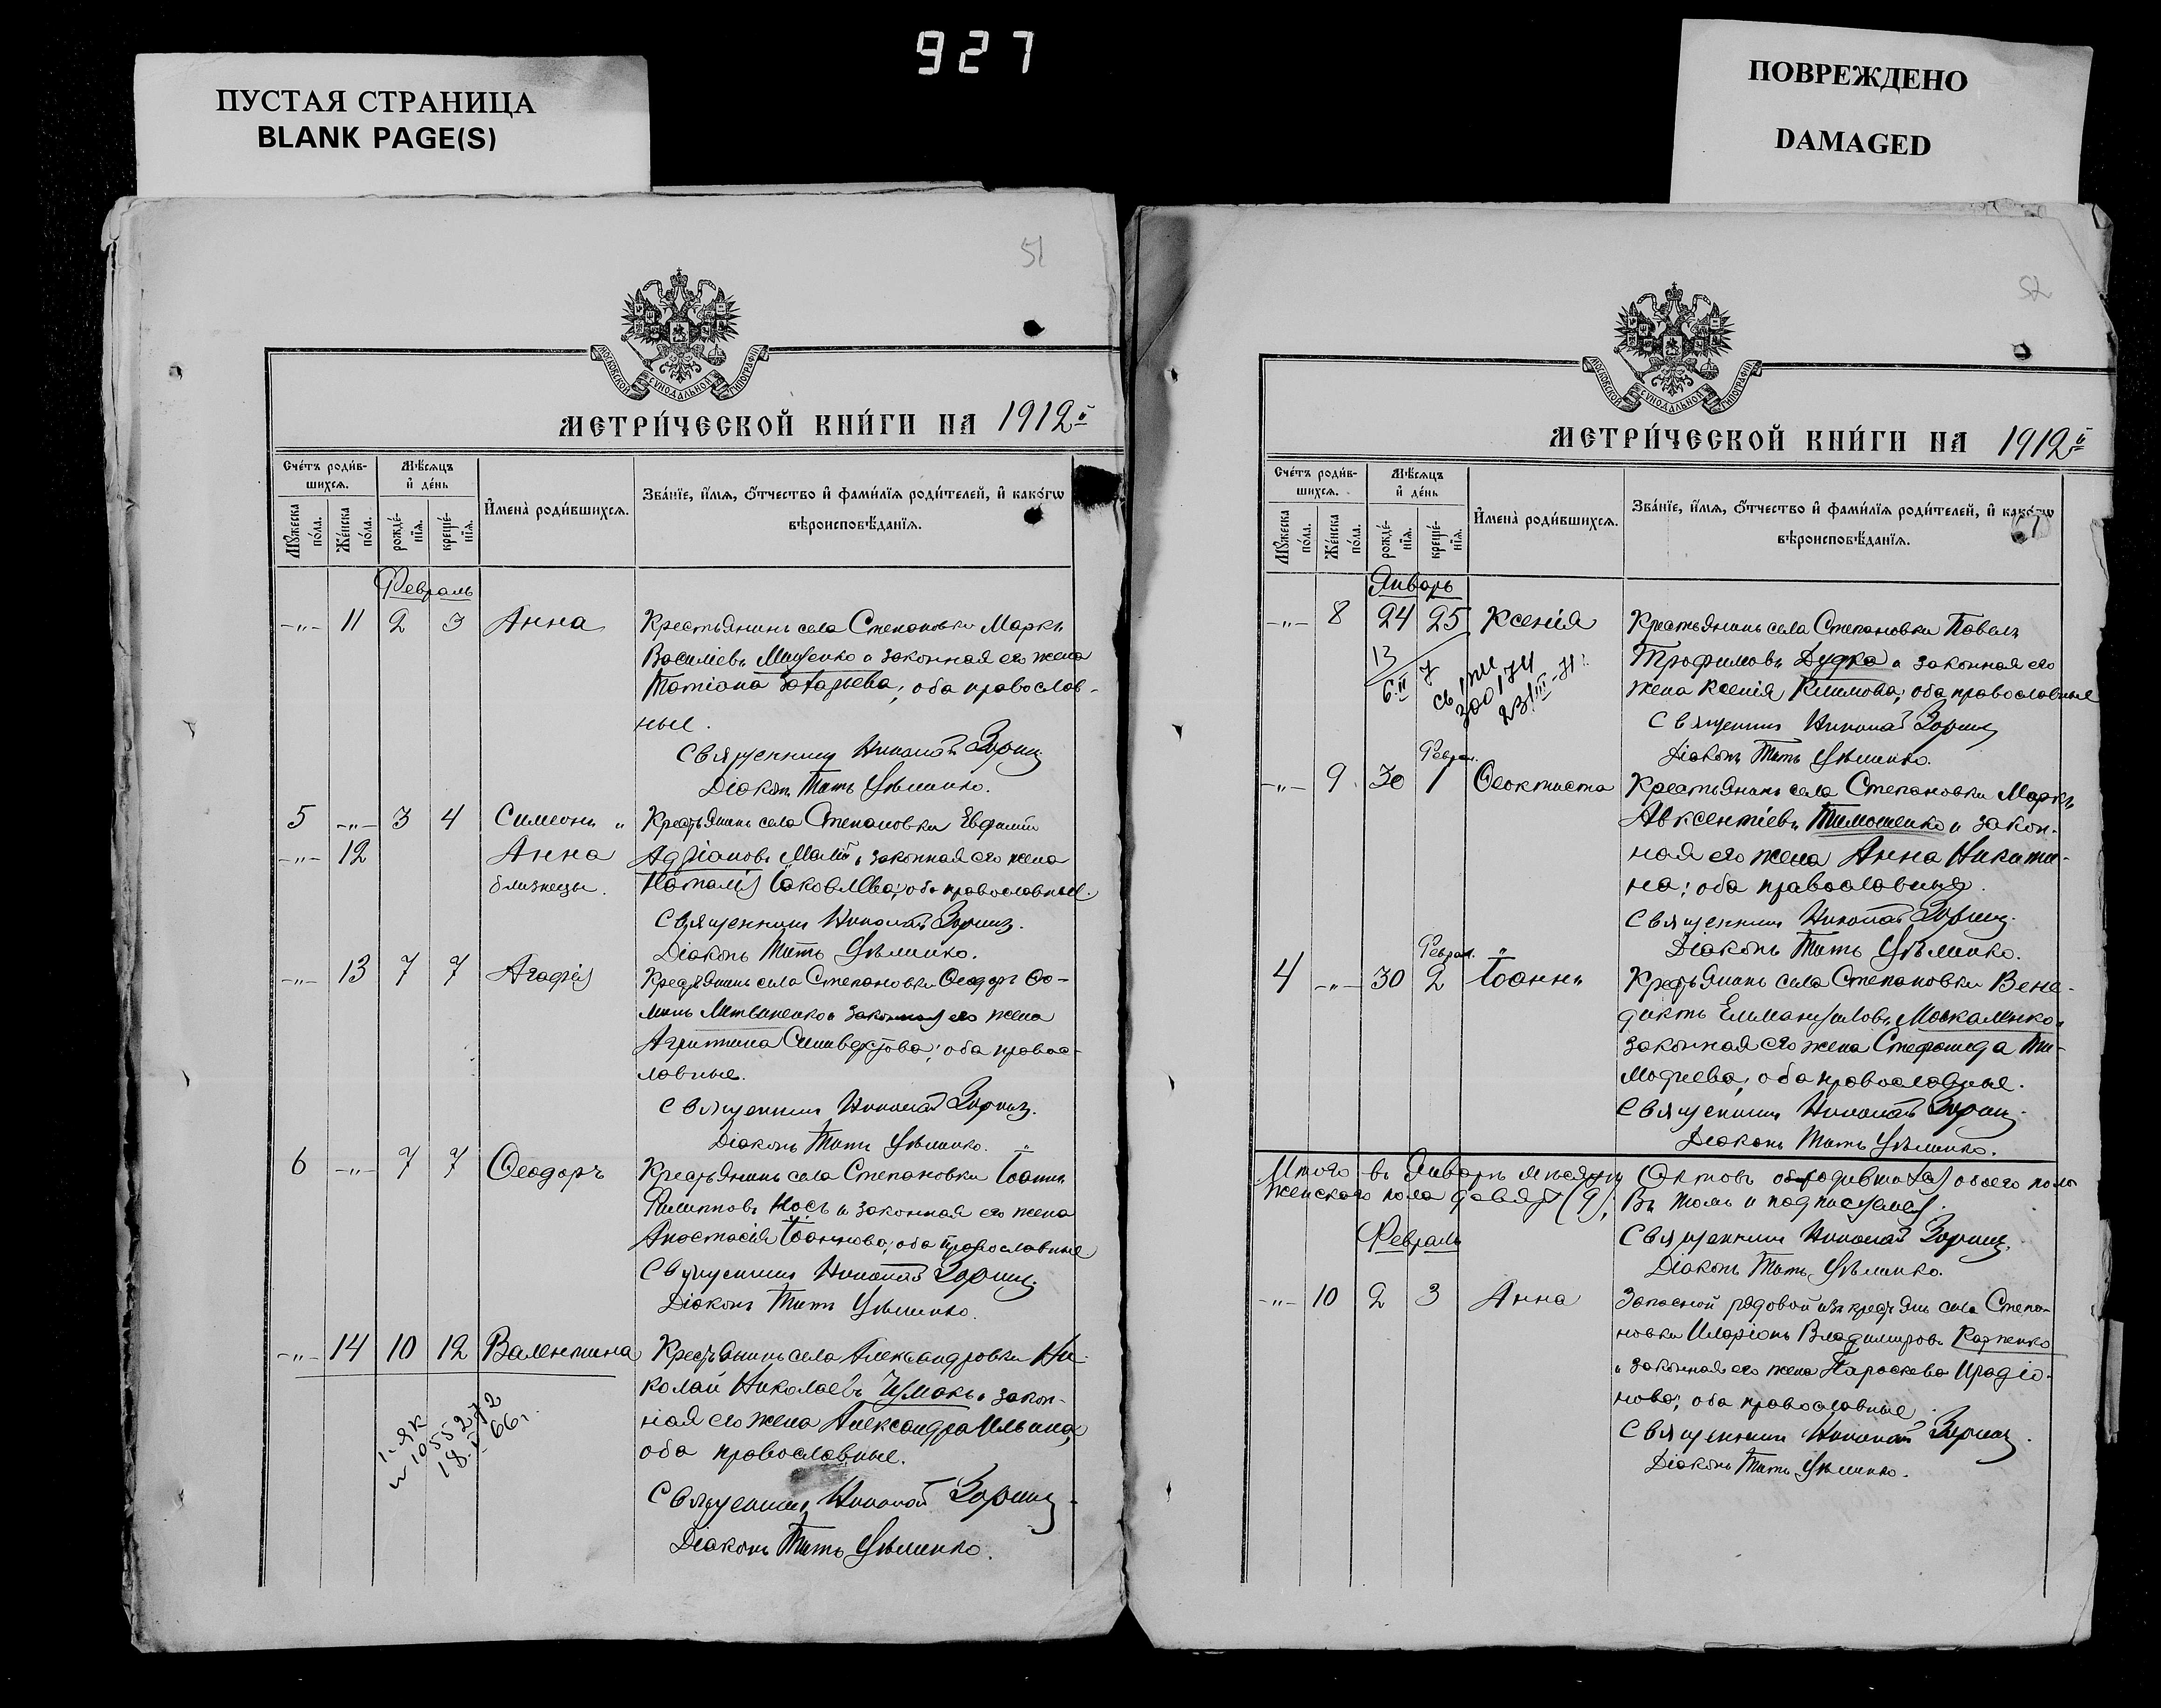 927
ПУСТАЯ СТРАНИЦА
BLANK PAGE(S)
ПОВРЕЖДЕНО
DAMAGED
51
МОСКОВСКОЙ СѴНОДАЛЬНОЙ ТИПОГРАФІИ
МЕТРИ́ЧЕСКОЙ КНИ́ГИ НА 1912й
Сче́тъ роди́в-
шихсѧ.
Мѣ́сѧцъ
и҆ де́нь
Мꙋ́жеска
по́ла.
Же́нска
по́ла.
рожде́-
нїѧ.
креще́-
нїѧ.
И҆мена̀ роди́вшихсѧ.
Зва́нїе, и҆́мѧ, ѻ҆́тчество и҆ фами́лїѧ роди́телей, и҆ како́гѡ
вѣроисповѣ́данїѧ.
Февраль
-"- 11 2 3 Анна Крестьянинъ села Степановки Маркъ
Василіевъ Мищенко и законная его жена
Татіана Захарьева; оба православ-
ные.
Священникъ Николай Зоринъ
Діаконъ Титъ Уѣлинко.
5 -"- 3 4 Симеонъ " Крестьянинъ села Степановки Евфимій
-"- 12 Анна Адріановъ Малій и законная его жена
близнецы. Наталія Іаковлева; оба православные.
Священникъ Николай Зоринъ.
Діаконъ Титъ Уѣлинко.
-"- 13 7 7 Агафія Крестьянинъ села Степановки Ѳеодоръ Ѳо-
минъ Литвиненко и законная его жена
Агриппина Силивестрова; оба право-
славные.
Священникъ Николай Зоринъ.
Діаконъ Титъ Уѣлинко.
6 -"- 7 7 Ѳеодоръ Крестьянинъ села Степановки Іоаннъ
Филипповъ Носъ и законная его жена
Анастасія Іоаннова; оба православные
Священникъ Николай Зоринъ.
Діаконъ Титъ Уѣлинко.
-"- 14 10 12 Валентина Крестьянинъ села Александровки Ни-
колай Николаевъ Чумакъ и закон-
ная его жена Александра Ильина;
оба православные.
1-ЯК
№ 1055272
18.V-66г.
Священникъ Николай Зоринъ.
Діаконъ Титъ Уѣлинко.
52
МОСКОВСКОЙ СѴНОДАЛЬНОЙ ТИПОГРАФІИ
МЕТРИ́ЧЕСКОЙ КНИ́ГИ НА 1912й
Сче́тъ роди́в-
шихсѧ.
Мѣ́сѧцъ
и҆ де́нь
Мꙋ́жеска
по́ла.
Же́нска
по́ла.
рожде́-
нїѧ.
креще́-
нїѧ.
И҆мена̀ роди́вшихсѧ.
Зва́нїе, и҆́мѧ, ѻ҆́тчество и҆ фами́лїѧ роди́телей, и҆ како́гѡ
вѣроисповѣ́данїѧ.
Январь
-"- 8 24 25 Ксенія Крестьянинъ села Степановки Павелъ
Трофимовъ Дудка и законная его
жена Ксенія Климова; оба православные
13
6.II 7
300174
23/III-71г.
Священникъ Николай Зоринъ
Діаконъ Титъ Уѣлинко.
Феврал.
-"- 9 30 1 Ѳеоктиста Крестьянинъ села Степановки Маркъ
Авксентіевъ Тимошенко и закон-
ная его жена Анна Никити-
на; оба православные.
Священникъ Николай Зоринъ.
Діаконъ Титъ Уѣлинко.
Феврал.
4 -"- 30 2 Іоаннъ Крестьянинъ села Степановки Вене-
диктъ Еммануиловъ Москаленко и
законная его жена Стефанида Ти-
мофеева; оба православные.
Священникъ Николай Зоринъ.
Діаконъ Титъ Уѣлинко.
Итого въ Январѣ мѣсяцѣ Актовъ о родившихся обоего пола
женскаго пола девять (9); Въ томъ и подписуемся.
Февраль
Священникъ Николай Зоринъ.
Діаконъ Титъ Уѣлинко.
-"- 10 2 3 Анна Запасной рядовой изъ крестьянъ села Степа-
новки Иларіонъ Владимировъ Карпенко
и законная его жена Параскева Иродіо-
нова; оба православные.
Священникъ Николай Зоринъ.
Діаконъ Титъ Уѣлинко.